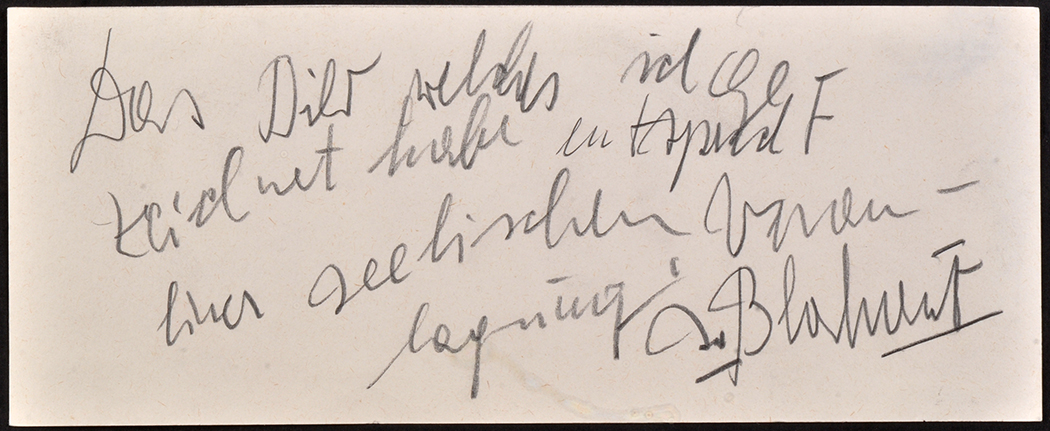 Das Bild welches ich Ge
zeichnet habe entspricht
einer seelischen Veran-
lagung!